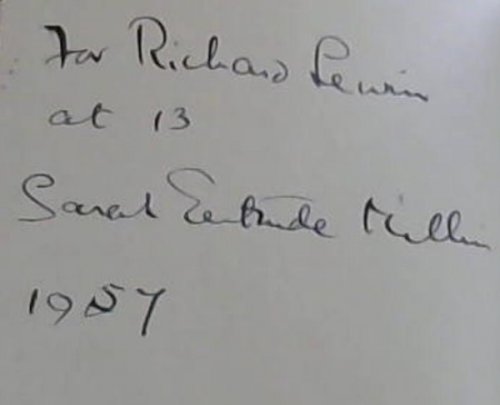 For Richard Lewin
at 13
Sarah Gertrude Millin
1957